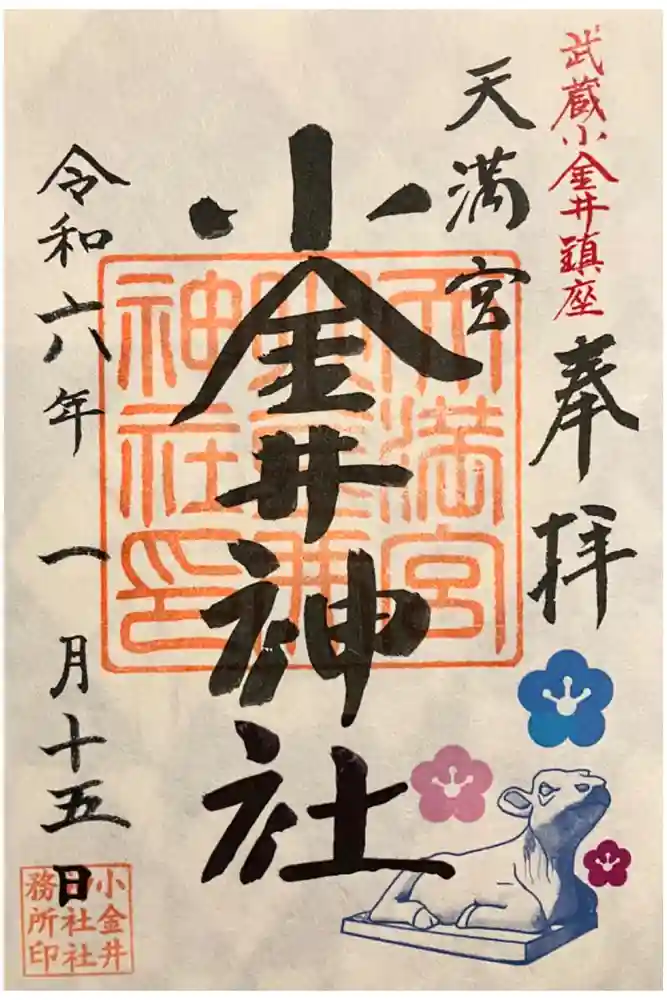 武蔵小金井鎮座
奉拝
天満宮
小金井神社
令和六年一月十五日
天満宮
小金井
神社印
小金井
神社社
務所印